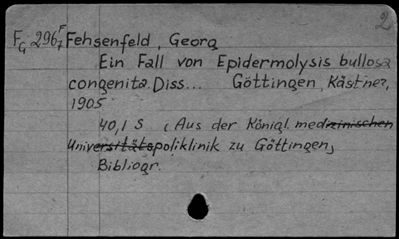 2
FG 296 F7 Fehsenfeld, Georg
Ein Fall von Epidermolysis bullosa
congenita. Diss... Göttingen, Kästner,
1905
40,1 S (Aus der Königl. medizinischen
Universitätspoliklinik zu Göttingen)
Bibliogr.